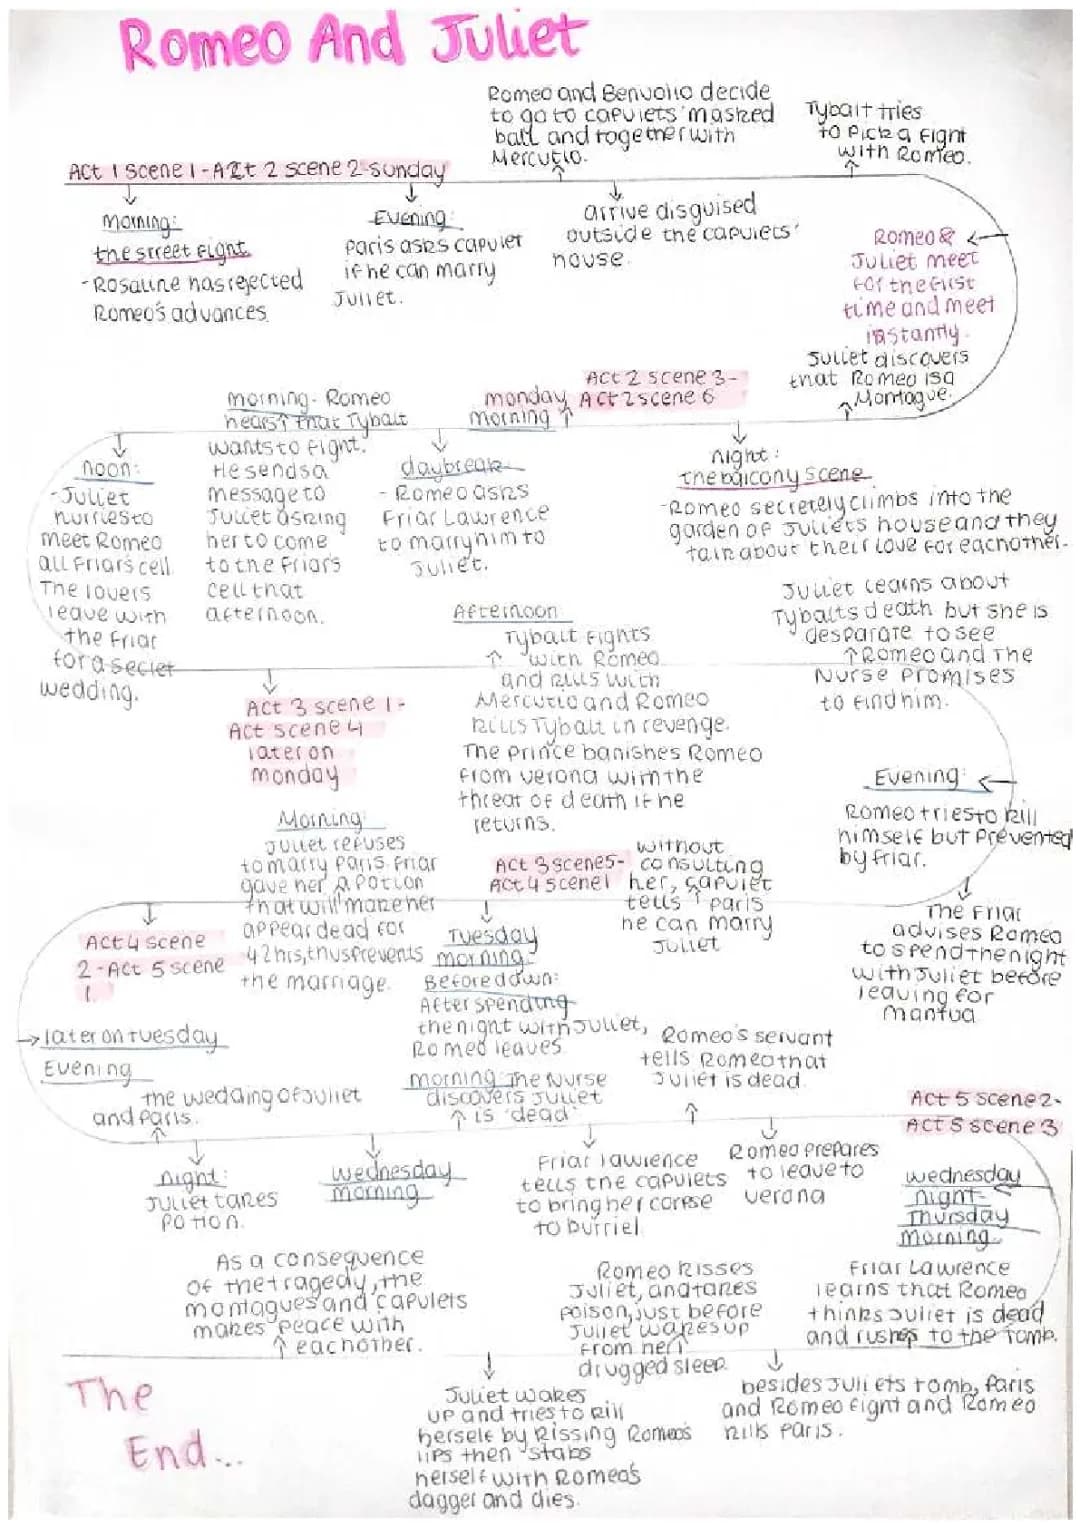 Romeo And Juliet
Romeo and Benvolio decide
to go to capulets' masked
ball and together with
Mercutio.
Tybalt tries
to Pick a fight
with Romeo.
Act 1 scene 1 - Act 2 scene 2 - sunday
Morning:
the street fight
- Rosaline has rejected
Romeo's advances
Evening:
Paris asks capulet
if he can marry
Juliet.
arrive disguised
outside the capulets'
house.
Romeo &
Juliet meet
for the first
time and meet
instantly.
Juliet discovers
that Romeo is a
Montague.
Act 2 scene 3 -
Act 2 scene 6
monday
morning
night:
the balcony scene
- Romeo secretely climbs into the
garden of Juliets house and they
talk about their love for eachother.
daybreak
- Romeo asks
Friar Lawrence
to marry him to
Juliet.
morning - Romeo
hears that Tybalt
wants to fight.
He sends a
message to
Juliet asking
her to come
to the friars
cell that
afternoon.
noon:
- Juliet
hurries to
meet Romeo
at Friar's cell
The lovers
leave with
the Friar
for a secret
wedding.
Act 3 scene 1 -
Act scene 4
later on
monday
Afternoon
Tybalt fights
with Romeo
and kills with
Mercutio and Romeo
kills Tybalt in revenge.
The prince banishes Romeo
from verona with the
threat of death if he
returns.
Juliet learns about
Tybalts death but she is
desparate to see
Romeo and the
Nurse promises
to find him.
Evening:
Romeo tries to kill
himself but prevented
by friar.
The Friar
advises Romeo
to spend the night
with Juliet before
leaving for
mantua
without
consulting
her, capulet
tells Paris
he can marry
Juliet
Act 3 scene 5 -
Act 4 scene 1
Tuesday
morning
Before down:
After spending
the night with Juliet,
Romeo leaves
Morning:
Juliet refuses
to marry Paris. Friar
gave her a potion
that will make her
appear dead for
42 hrs, thus prevents
the marriage.
Act 4 scene
2 - Act 5 scene
1.
later on tuesday
Evening
the wedding of Juliet
and Paris.
night:
Juliet takes
potion.
wednesday
morning
morning: The Nurse
discovers Juliet
is 'dead'
Friar lawrence
tells the capulets
to bring her corpse
to burriel
Romeo's servant
tells Romeo that
Juliet is dead
Romeo prepares
to leave to
verona
Act 5 scene 2 -
Act 5 scene 3
wednesday
night -
Thursday
Morning
Friar Lawrence
learns that Romeo
thinks Juliet is dead
and rushes to the tomb.
besides Juliets tomb, Paris
and Romeo fight and Romeo
kills Paris.
Romeo kisses
Juliet, and takes
poison, just before
Juliet wakes up
from her
drugged sleep.
Juliet wakes
up and tries to kill
herself by kissing Romeo's
lips then stabs
herself with Romeo's
dagger and dies.
As a consequence
of the tragedy, the
montagues and capulets
makes peace with
eachother.
The
End...